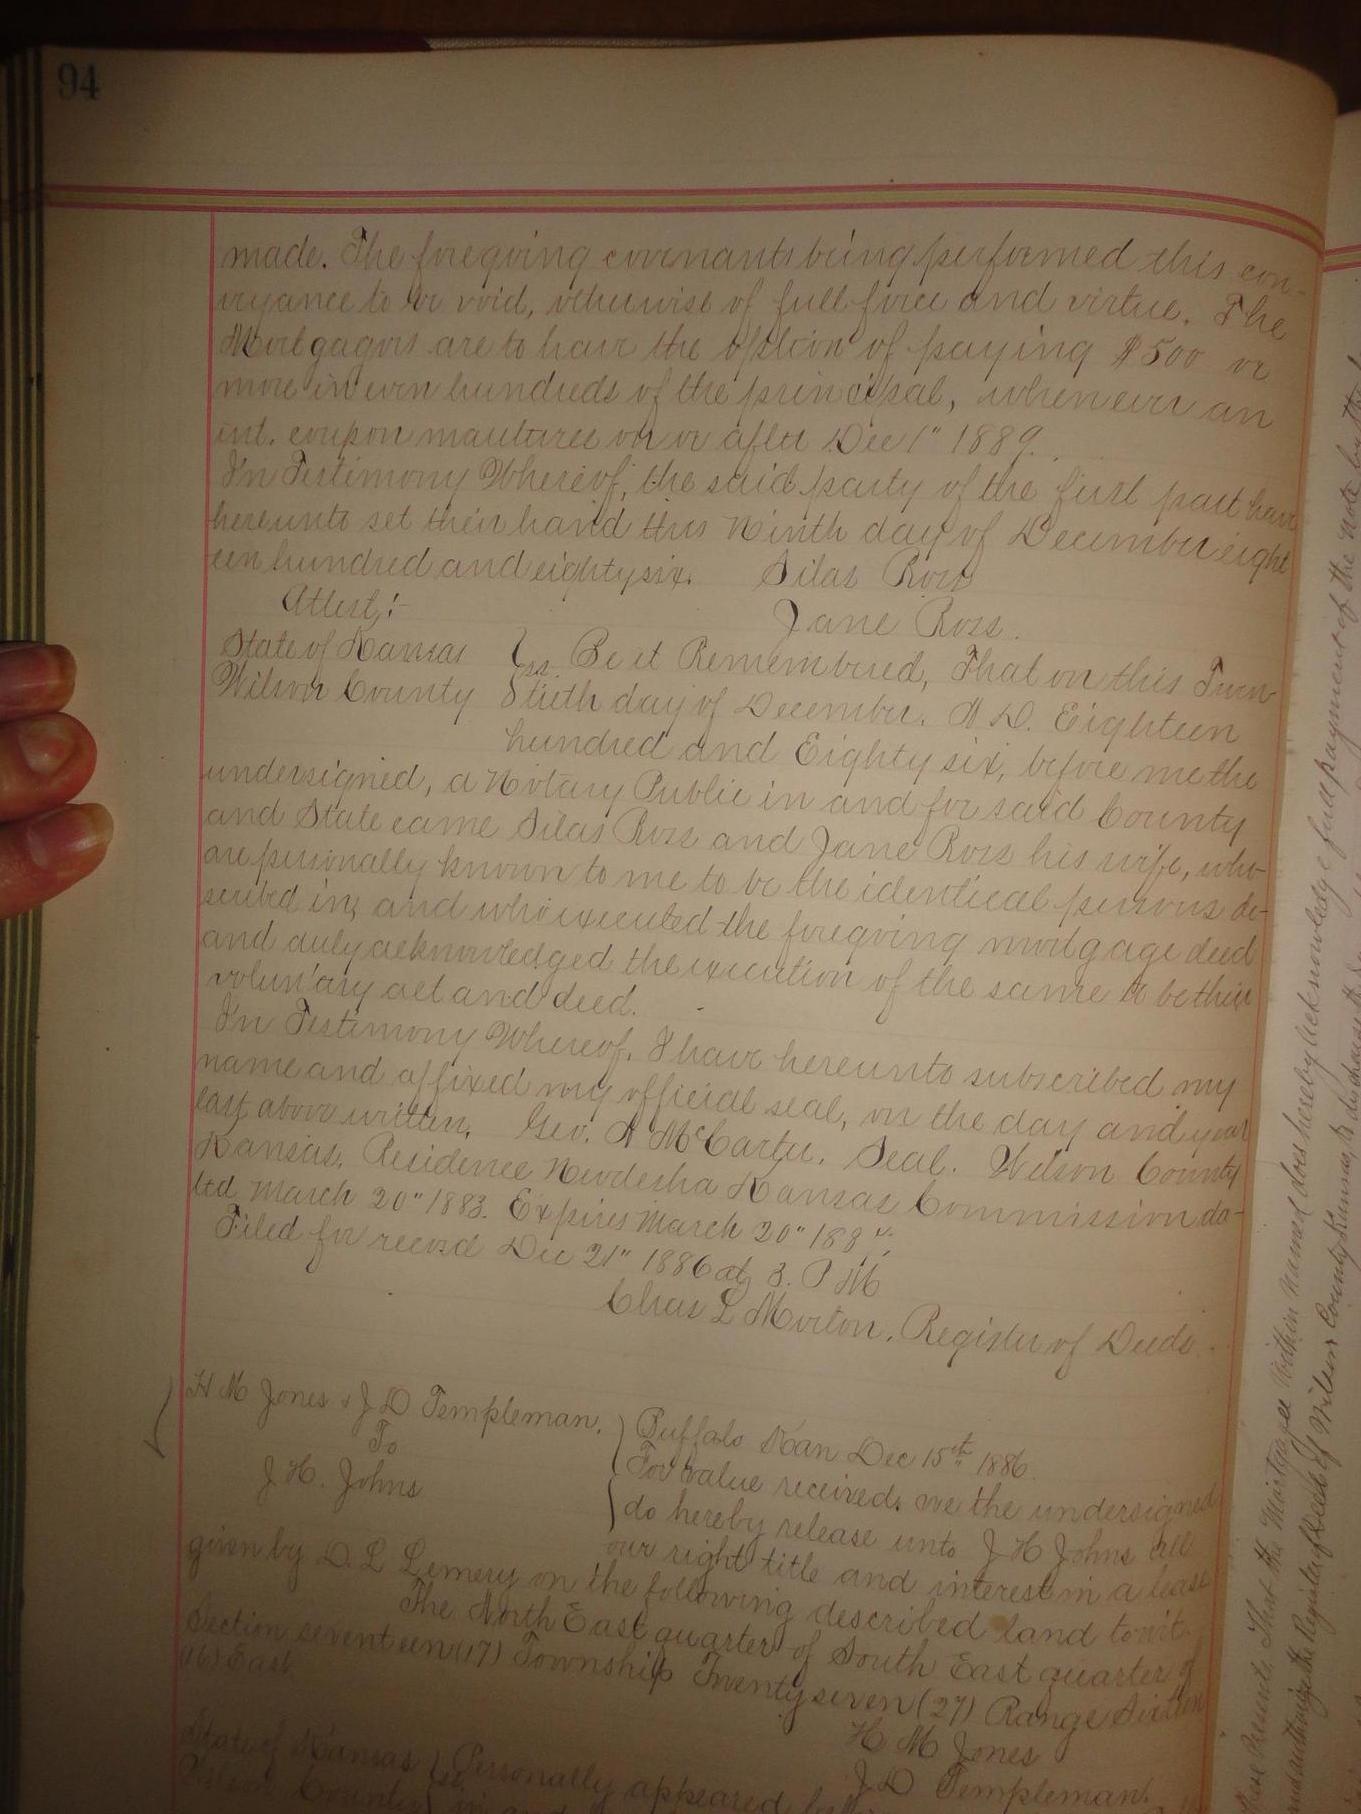 94
made. The foregoing covenants being performed this con-
veyance to be void, otherwise of full force and virtue. The
Mortgagors are to have the option of paying $500 or
more in even hundreds of the principal, whenever an
int. coupon mautures on or after Dec 1" 1889.
In Testimony Whereof, the said party of the first part have
hereunto set their hand this Ninth day of December eight
een hundred and eighty six. Silas Ross
Attest:- Jane Ross.
State of Kansas } ss. Be it Remembered, That on this Twen
Wilson County } tieth day of December. A D. Eighteen
hundred and Eighty six, before me the
undersigned, a Notary Public in and for said County
and State came Silas Ross and Jane Ross his wife, who
are personally known to me to be the identical persons de-
scribed in, and who executed the foregoing mortgage deed
and duly acknowledged the execution of the same to be their
voluntary act and deed.
In Testimony Whereof. I have hereunto subscribed my
name and affixed my official seal, on the day and year
last above written. Geo. A McCarter. Seal. Wilson County
Kansas. Residence Neodesha Kansas Commission da-
ted March 20" 1883. Expires March 20" 188
Filed for record Dec 21" 1886 at 3. P M
Chas L Morton. Register of Deeds.
H M Jones & J D Templeman. } Buffalo Kan Dec 15th 1886.
To } For value received, we the undersigned
J. H. Johns } do hereby release unto J H Johns all
our right title and interest in a lease
given by D. L Lemery on the following described land towit
The North East quarter of South East quarter of
Section seventeen (17) Township Twenty seven (27) Range Sixteen
(16) East
H M Jones
J D Templeman.
State of Kansas } Personally appeared
Wilson County } ss in and
These Presents, That the Mortgagee within named does hereby acknowledge full payment of the note by the
and authorize the Register of Deeds of Wilson County Kansas, to discharge the